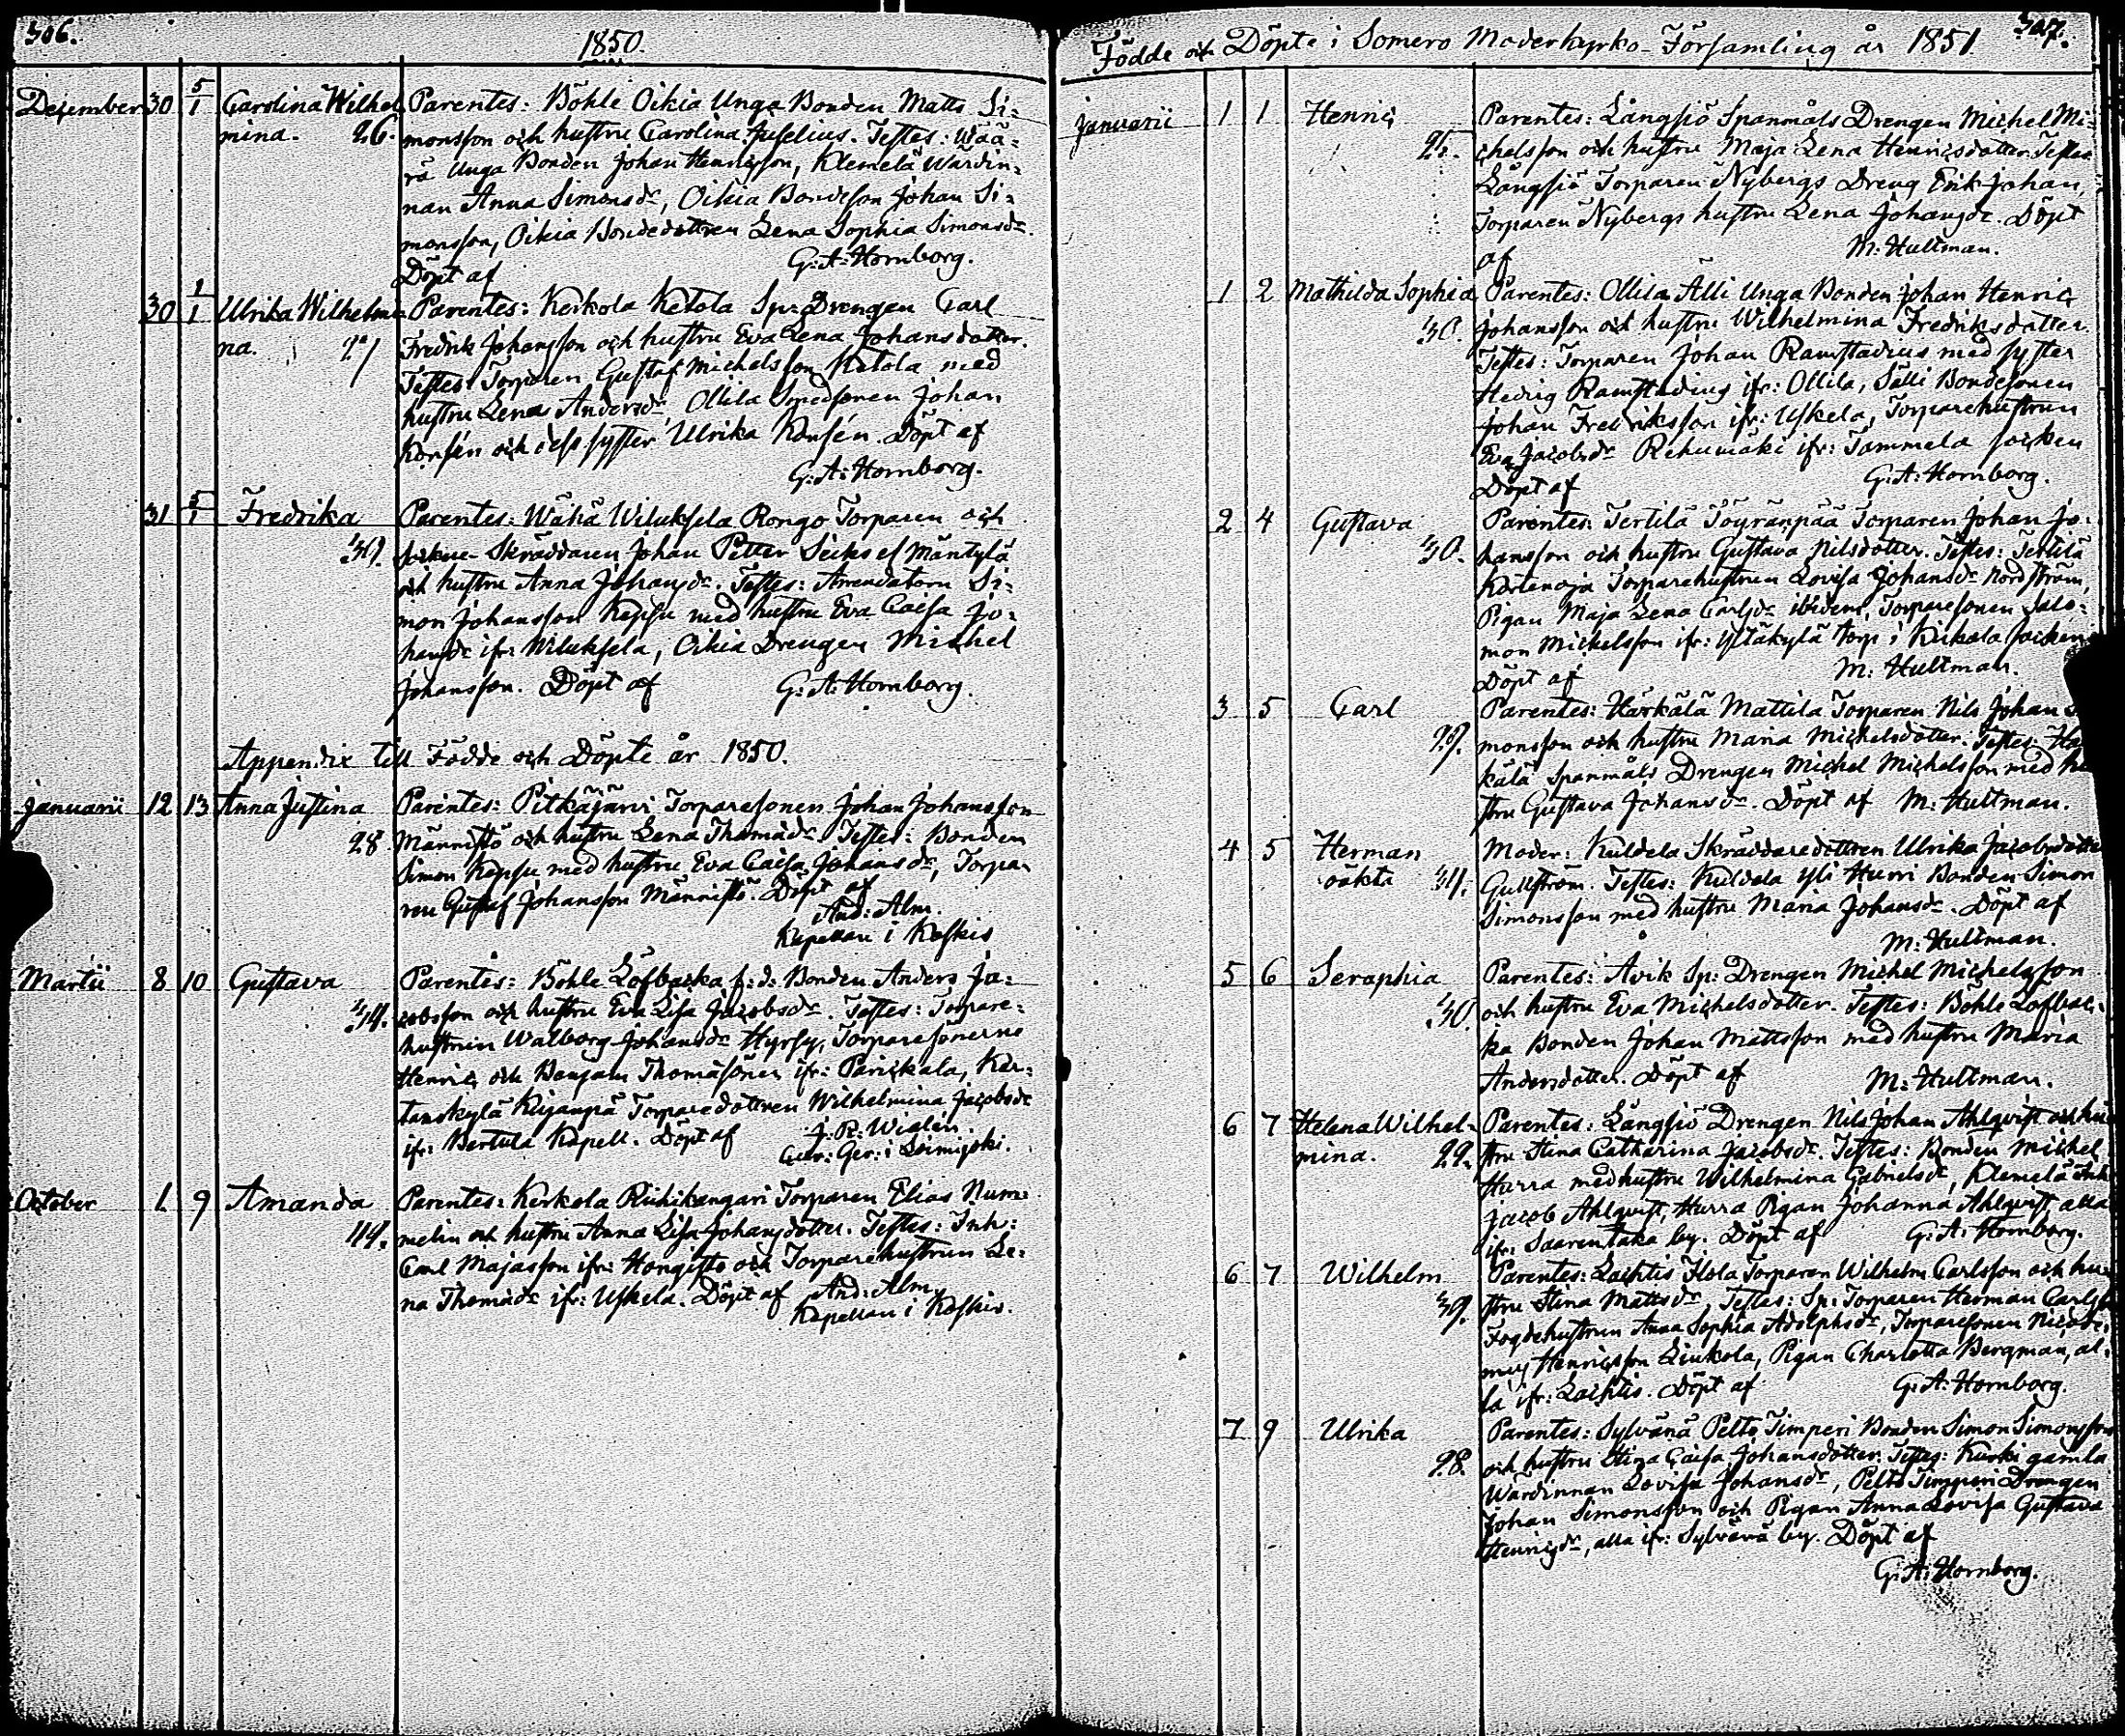 306.
1850.
Dezember 30 5/1 Carolina Wilhel Parentes: Böhle Oikia Unga Bonden Matts Si=
mina. 26. monsson och hustru Carolina Juselius. Testes: Wää=
rä Unga Bonden Johan Henricsson, Klemelä Wärdin=
nan Anna Simonsdr, Oikia Bondeson Johan Si=
monsson, Oikia Bondedottren Lena Sophia Simonsdr.
Döpt af G: A: Hornborg.
30 1/1 Ulrika Wilhelmi= Parentes: Kerkola Ketola Sp: Drengen Carl
na. 27 Fredrik Johansson och hustru Eva Lena Johansdotter.
Testes: Torparen Gustaf Michelsson Ketola med
hustru Lena Andersdr, Ollila Smedsonen Johan
Konsén och dess syster Ulrika Konsén. Döpt af
G: A: Hornborg.
31 5/1 Fredrika Parentes: Wähä Wiluksela Rongo Torparen och
39. Sockne-Skräddaren Johan Petter Seiks el Mäntylä
och hustru Anna Johansdr. Testes: Arrendatorn Si=
mon Johansson Keppu med hustru Eva Caisa Jo=
hansdr ifr: Wiluksela, Oikia Drengen Michel
Johansson. Döpt af G: A: Hornborg.
Appendix till Födde och Döpte år 1850.
Januarii 12 13 Anna Justina Parentes: Pitkäjärvi Torparesonen Johan Johansson
28. Männistö och hustru Lena Thomädr. Testes: Bonden
Simon Keppu med hustru Eva Caisa Johansdr, Torpa=
ren Gustaf Johansson Männistö. Döpt af
And: Alm.
Kapellan i Koskis
Martii 8 10 Gustava Parentes: Böhle Löfbacka f: d: Bonden Anders Ja=
34. cobsson och hustru Eva Lisa Jacobsdr. Testes: Torpare=
hustrun Walborg Johansdr Hyrsy, Torparesönerne
Henric och Benjam Thomäsöner ifr: Parickala, Kar=
tanokylä Kujanpä Torparedottren Wilhelmina Jacobsdr
ifr: Bertula Kapell. Döpt af J: R: Widlén.
Cur: Ger: i Loimijoki.
October 1. 9 Amanda Parentes: Kerkola Riihikangari Torparen Elias Num=
44. melin och hustru Anna Lisa Johansdotter. Testes: Inh:
Carl Majasson ifr: Hongisto och Torparehustrun Le=
na Thomädr ifr: Uskela. Döpt af And: Alm.
Kapellan i Koskis.
307.
Födde och Döpte i Somero Moderkyrko-Församling år 1851
Januarii 1 1 Henric Parentes: Långsjö Spanmåls Drengen Michel Mi=
25. chelsson och hustru Maja Lena Henricsdotter. Testes
Långsjö Torparen Nybergs Dreng Erik Johan,
Torparen Nybergs hustru Lena Johansdr. Döpt
af M: Hultman.
1 2 Mathilda Sophia Parentes: Ollila Älli Unga Bonden Johan Henric
30. Johansson och hustru Wilhelmina Fredriksdotter.
Testes: Torparen Johan Ramstadius med syster
Hedvig Ramstadius ifr: Ollila, Sälli Bondesonen
Johan Fredriksson ifr: Uskela, Torparehustrun
Eva Jacobsdr Rehumäki ifr: Tammela socken
Döpt af G: A: Hornborg.
2 4 Gustava Parentes: Tertilä Töyränpää Torparen Johan Jo=
30. hansson och hustru Gustava Nilsdotter. Testes: Tertilä
Kortenoja Torparehustrun Lovisa Johansdr Nordström,
Pigan Maja Lena Carlsdr ibidem, Torparesonen Salo=
mon Mickelsson ifr: Yltäkylä torp i Kiikala socken.
Döpt af M: Hultman.
3 5 Carl Parentes: Härkälä Mattila Torparen Nils Johan
29. monsson och hustru Maria Michelsdotter. Testes: Här
kälä Spanmåls Drengen Michel Michelsson med hu
stru Gustava Johansdr. Döpt af M: Hultman.
4 5 Herman Moder: Kuldela Skräddaredottren Ulrika Jacobsdotter
oäkta 34. Gullström. Testes: Kuldela Yli Hurri Bonden Simon
Simonsson med hustru Maria Johansdr. Döpt af
M: Hultman.
5 6 Seraphia Parentes: Avik Sp: Drengen Michel Michelsson
30. och hustru Eva Michelsdotter. Testes: Böhle Löfbac=
ka Bonden Johan Mattsson med hustru Maria
Andersdotter. Döpt af M: Hultman.
6 7 Helena Wilhel= Parentes: Långsjö Drengen Nils Johan Ahlqvist och hu
mina. 29. stru Stina Catharina Jacobsdr. Testes: Bonden Michel
Hurra med hustru Wilhelmina Gabrielsdr, Klemelä Inh
Jacob Ahlqvist, Hurra Pigan Johanna Ahlqvist, alla
ifr: Saarentaka by. Döpt af G: A: Hornborg.
6 7 Wilhelm Parentes: Lachtis Flola Torparen Wilhelm Carlsson och hu=
39. stru Stina Mattsdr, Testes: Sp: Torparen Herman Carlss
Fogdehustrun Anna Sophia Adolphsdr, Torparesonen Nicode=
mus Henricsson Liukola, Pigan Charlotta Bergman, al=
la ifr: Lachtis. Döpt af G: A: Hornborg.
7 9 Ulrika Parentes: Sylvänä Pelto Timperi Bonden Simon Simonsson
28. och hustru Stina Caisa Johansdotter. Testes: Kurki gamla
Wärdinnan Lovisa Johansdr, Pelto Timperi Drengen
Johan Simonsson och Pigan Anna Lovisa Gustava
Henricsdr, alla ifr: Sylvänä by. Döpt af
G: A: Hornborg.